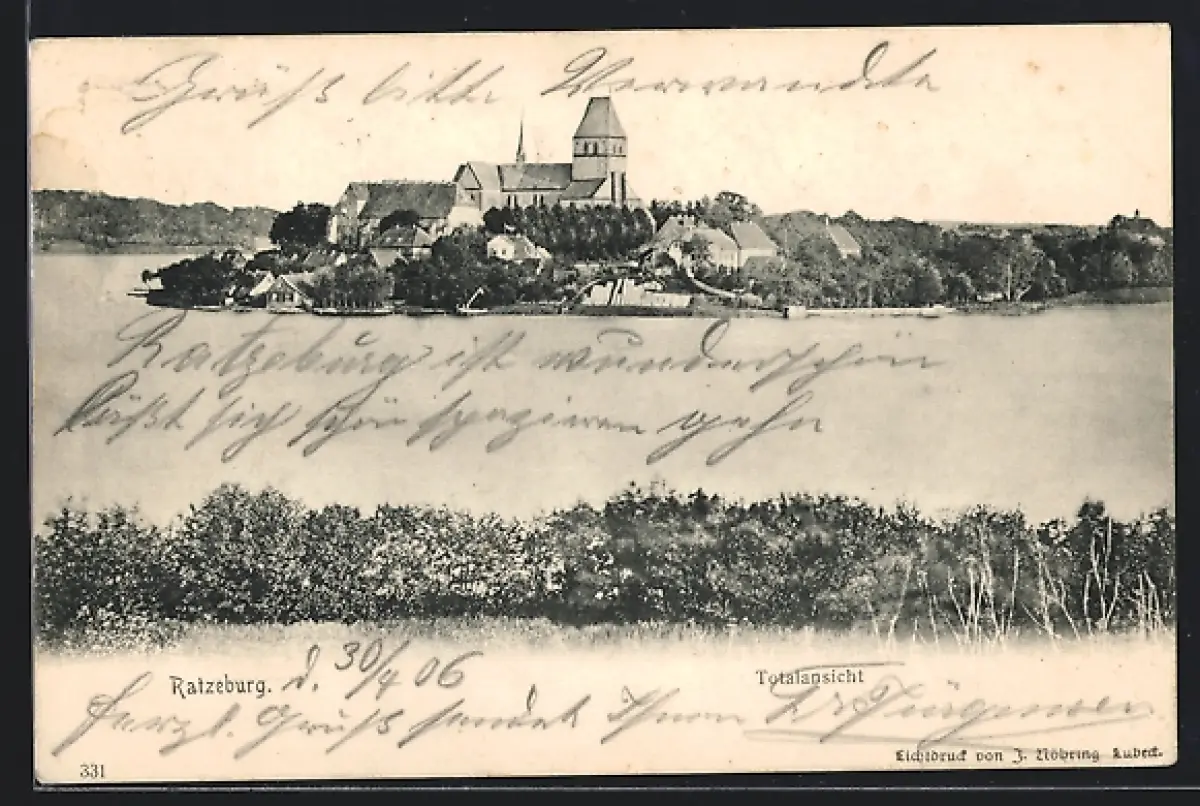 Grüß bitte Verwandte
Ratzeburg ist wunderschön
läßt sich schön spaziren gehn
Ratzeburg. d. 30/4 06
Totalansicht
Herzl. Gruß sendet Ihnen Fr Jürgensen
Lichtdruck von J. Nöhring Lübeck.
331